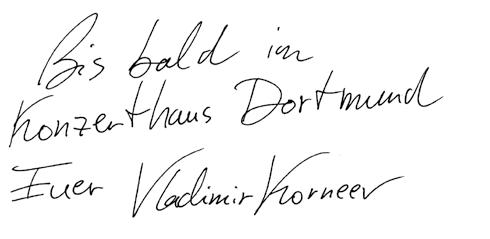 Bis bald im
Konzerthaus Dortmund
Euer Vladimir Korneev